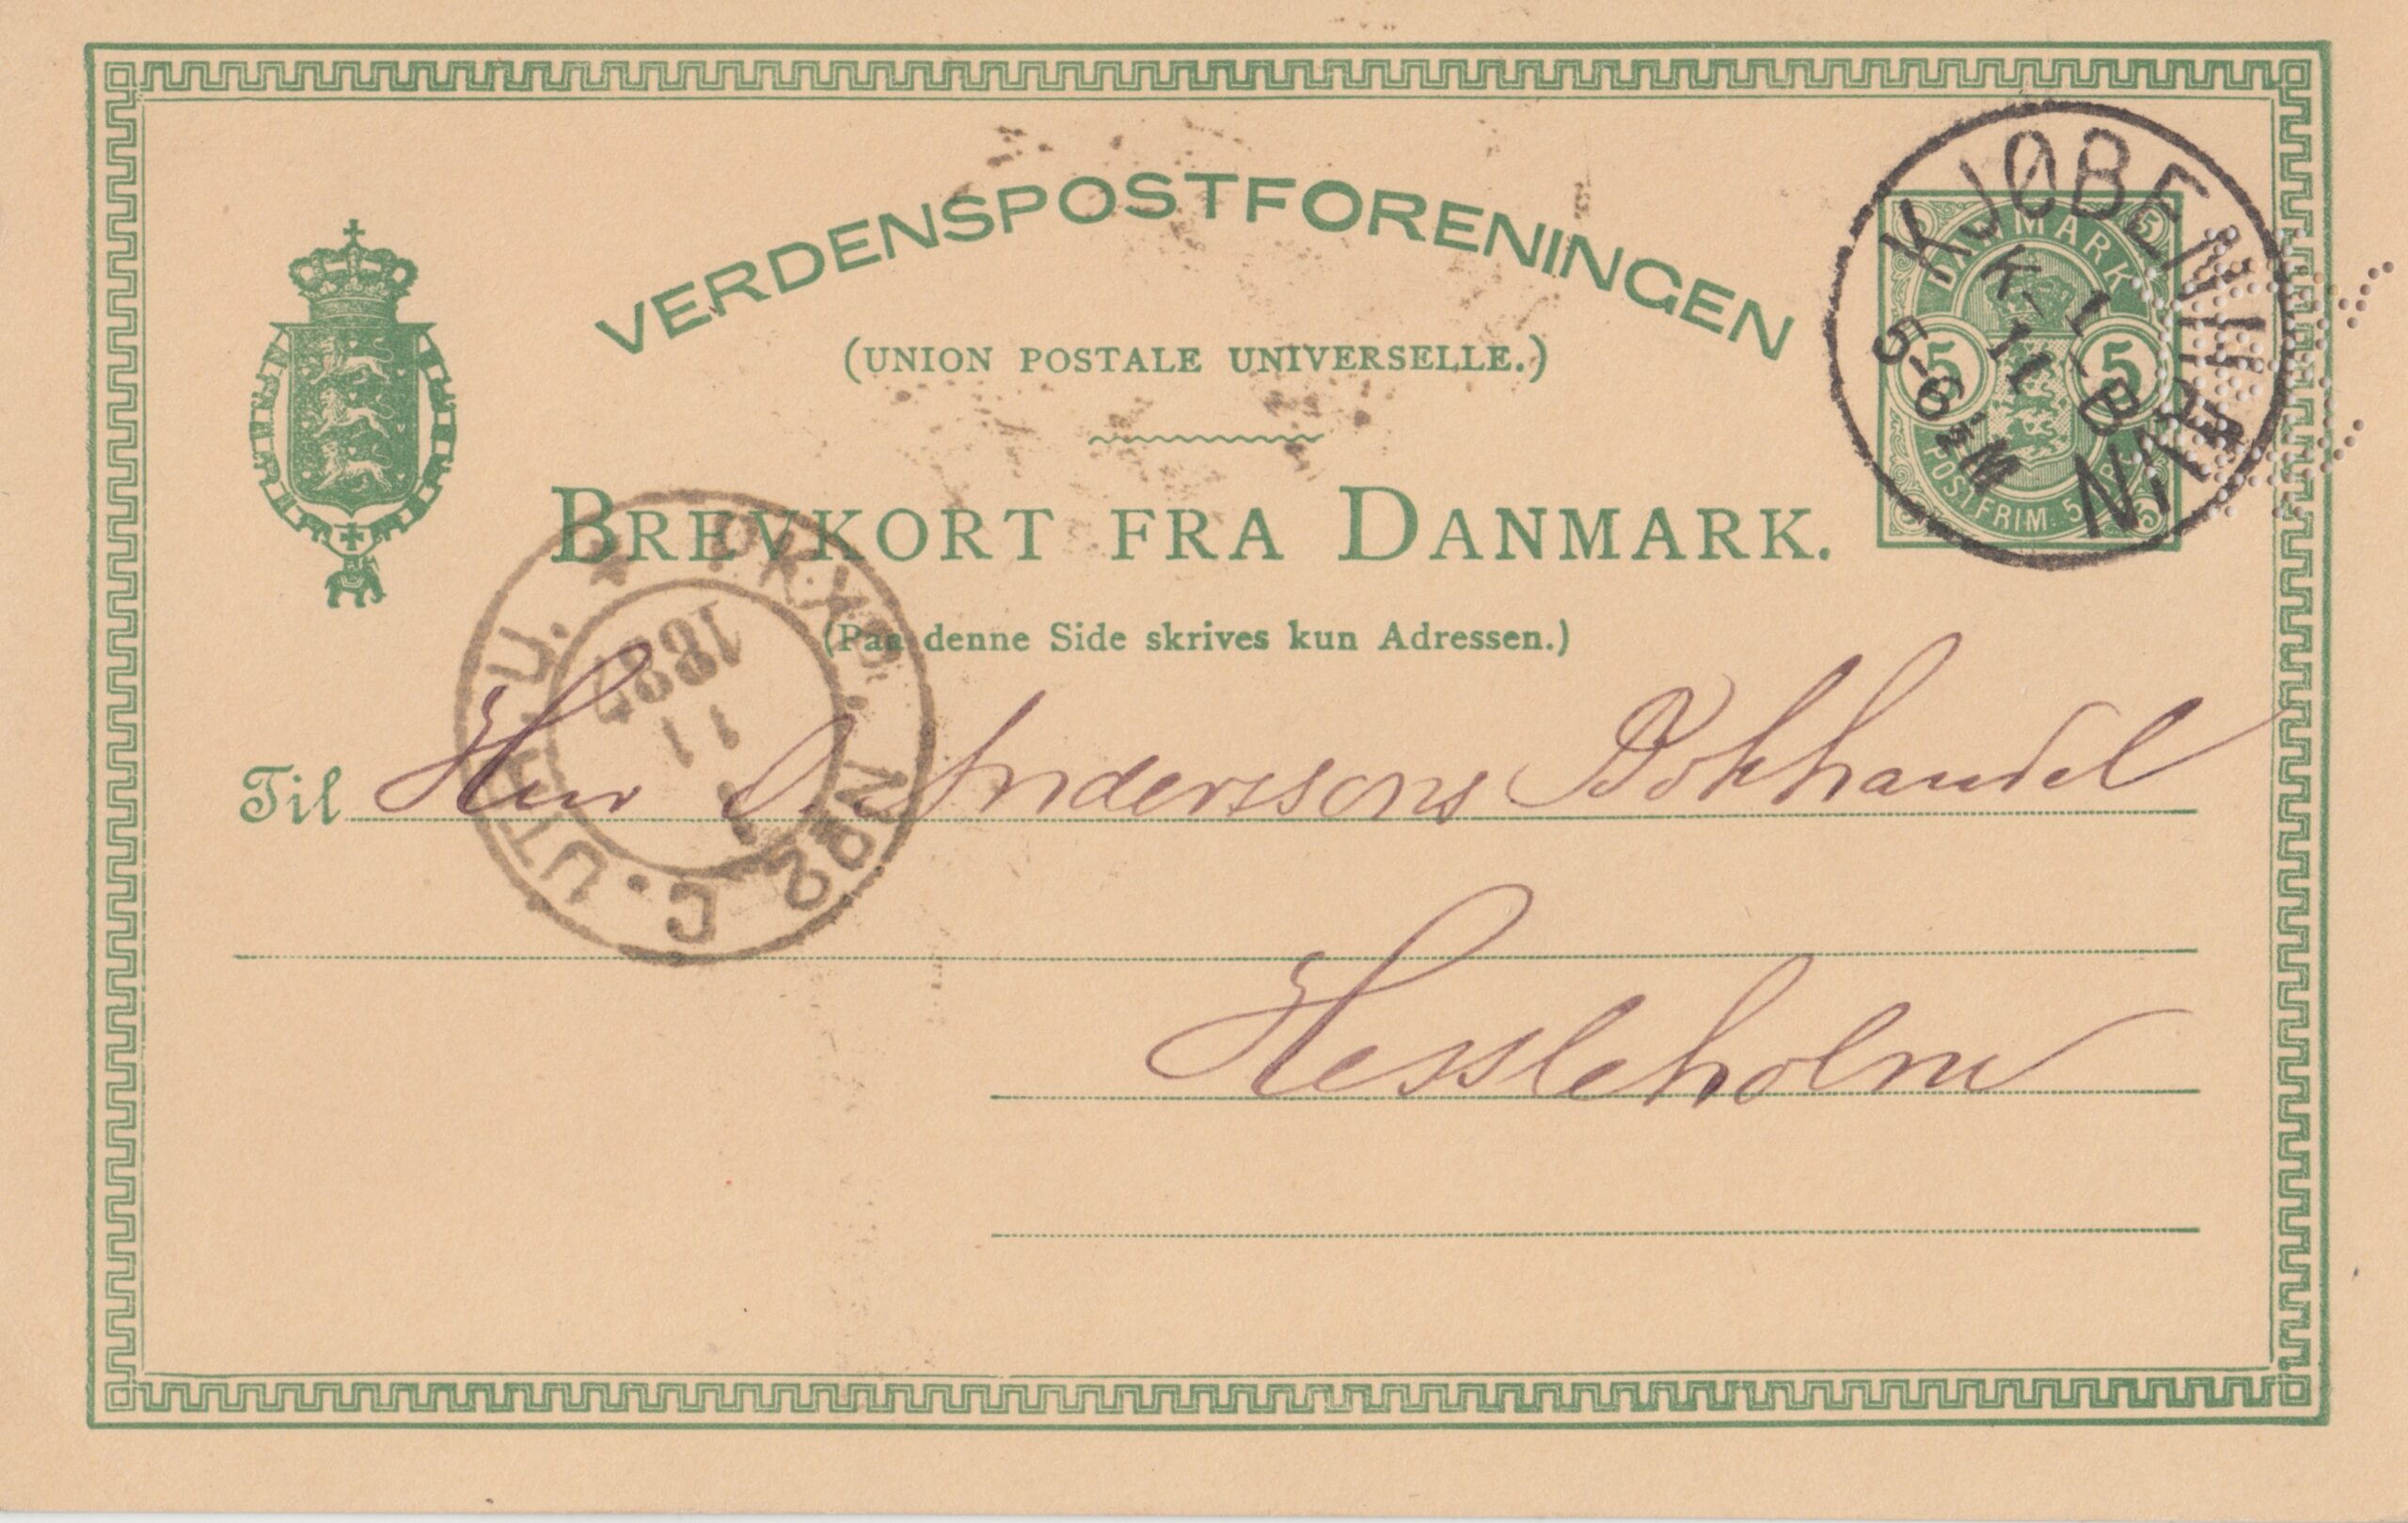 VERDENSPOSTFORENINGEN
(UNION POSTALE UNIVERSELLE.)
BREVKORT FRA DANMARK.
(Paa denne Side skrives kun Adressen.)
DANMARK
5 5
POSTFRIM. 5
KJØBENHAVN
K
1
11
5-6 E M
B
PKXP. Nr 2 C. UTR. U.
1
11
1887
Til Herr Anderssons Bokhandel
Hessleholm